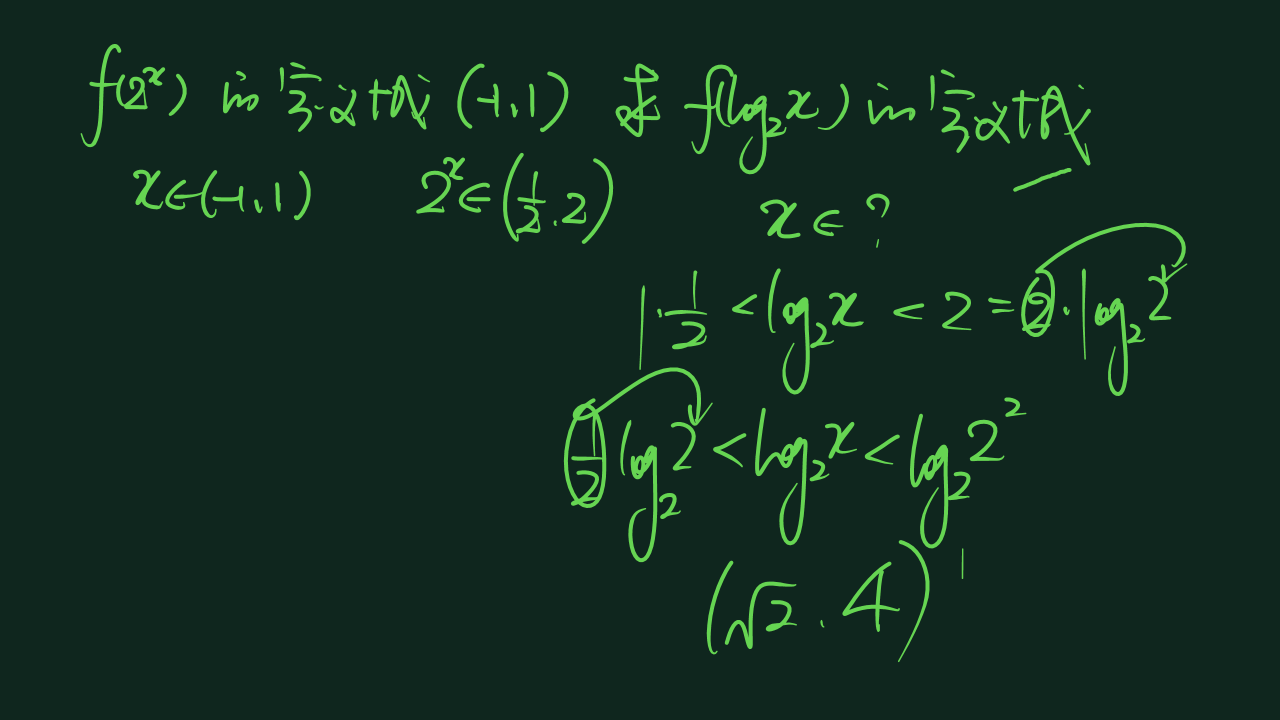 f(2^x) (-1,1) 求 f(log₂x)
x∈(-1,1) 2^x∈(1/2.2)
x∈?
1·1/2 < log₂x < 2 = 2·log₂2
1/2 log₂2 < log₂x < log₂2²
(√2.4)